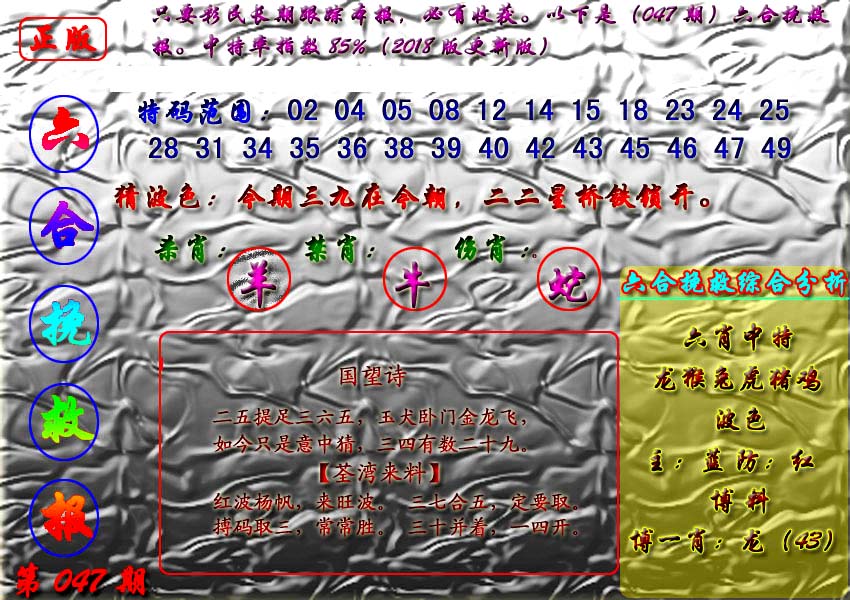 正版
只要彩民长期跟踪本报，必有收获。以下是（047期）六合挽救
报。中特率指数85%（2018版更新版）
特码范围：02 04 05 08 12 14 15 18 23 24 25
28 31 34 35 36 38 39 40 42 43 45 46 47 49
猜波色：今期三九在今朝，二二星桥铁锁开。
杀肖：羊 禁肖：牛 伤肖：。蛇
六合挽救报
第047期
国望诗
二五提足三六五，玉犬卧门金龙飞，
如今只是意中猜，三四有数二十九。
【荃湾来料】
红波杨帆，来旺波。 三七合五，定要取。
搏码取三，常常胜。 三十并着，一四开。
六合挽救综合分析
六肖中特
龙猴兔虎猪鸡
波色
主：蓝防：红
博料
博一肖：龙（43）